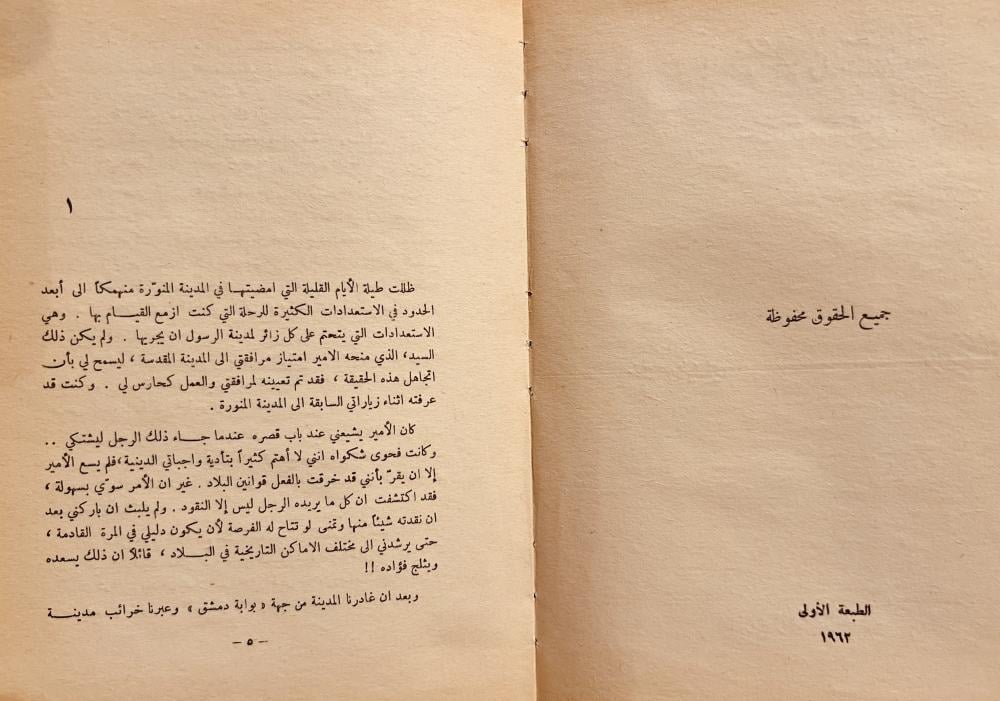 جميع الحقوق محفوظة
الطبعة الأولى
١٩٦٢
١
ظللت طيلة الأيام القليلة التي امضيتهـا في المدينة المنوّرة منهمكاً الى أبعد
الحدود في الاستعدادات الكثيرة للرحلة التي كنت ازمع القيـام بها . وهي
الاستعدادات التي يتحتم على كل زائر لمدينة الرسول ان يجريها . ولم يكن ذلك
السيد، الذي منحه الامير امتياز مرافقتي الى المدينة المقدسة ، ليسمح لي بأن
اتجاهل هذه الحقيقة ، فقد تم تعيينه لمرافقتي والعمل كحارس لي . وكنت قد
عرفته اثناء زياراتي السابقة الى المدينة المنورة .
كان الأمير يشيعني عند باب قصره عندما جـاء ذلك الرجل ليشتكي ..
وكانت فحوى شكواه انني لا أهتم كثيراً بتأدية واجباتي الدينية ، فلم يسع الأمير
إلا ان يقرّ بأنني قد خرقت بالفعل قوانين البلاد . غير ان الأمر سوّي بسهولة ،
فقد اكتشفت ان كل ما يريده الرجل ليس إلا النقود . ولم يلبث ان باركني بعد
ان نقدته شيئاً منها وتمنى لو تتاح له الفرصة لأن يكون دليلي في المرة القادمة ،
حتى يرشدني الى مختلف الاماكن التاريخية في البـلاد ، قائلاً ان ذلك يسعده
ويثلج فؤاده !!
وبعد ان غادرنا المدينة من جهة « بوابة دمشق » وعبرنا خرائب مدينـة
– ٥ –